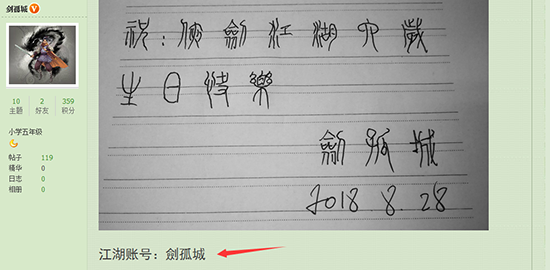 剑孤城
10 2 359
主题 好友 积分
小学五年级
帖子 119
精华 0
日志 0
相册 0
祝：侠劍江湖六歲
生日快樂
劍孤城
2018.8.28
江湖账号：劍孤城